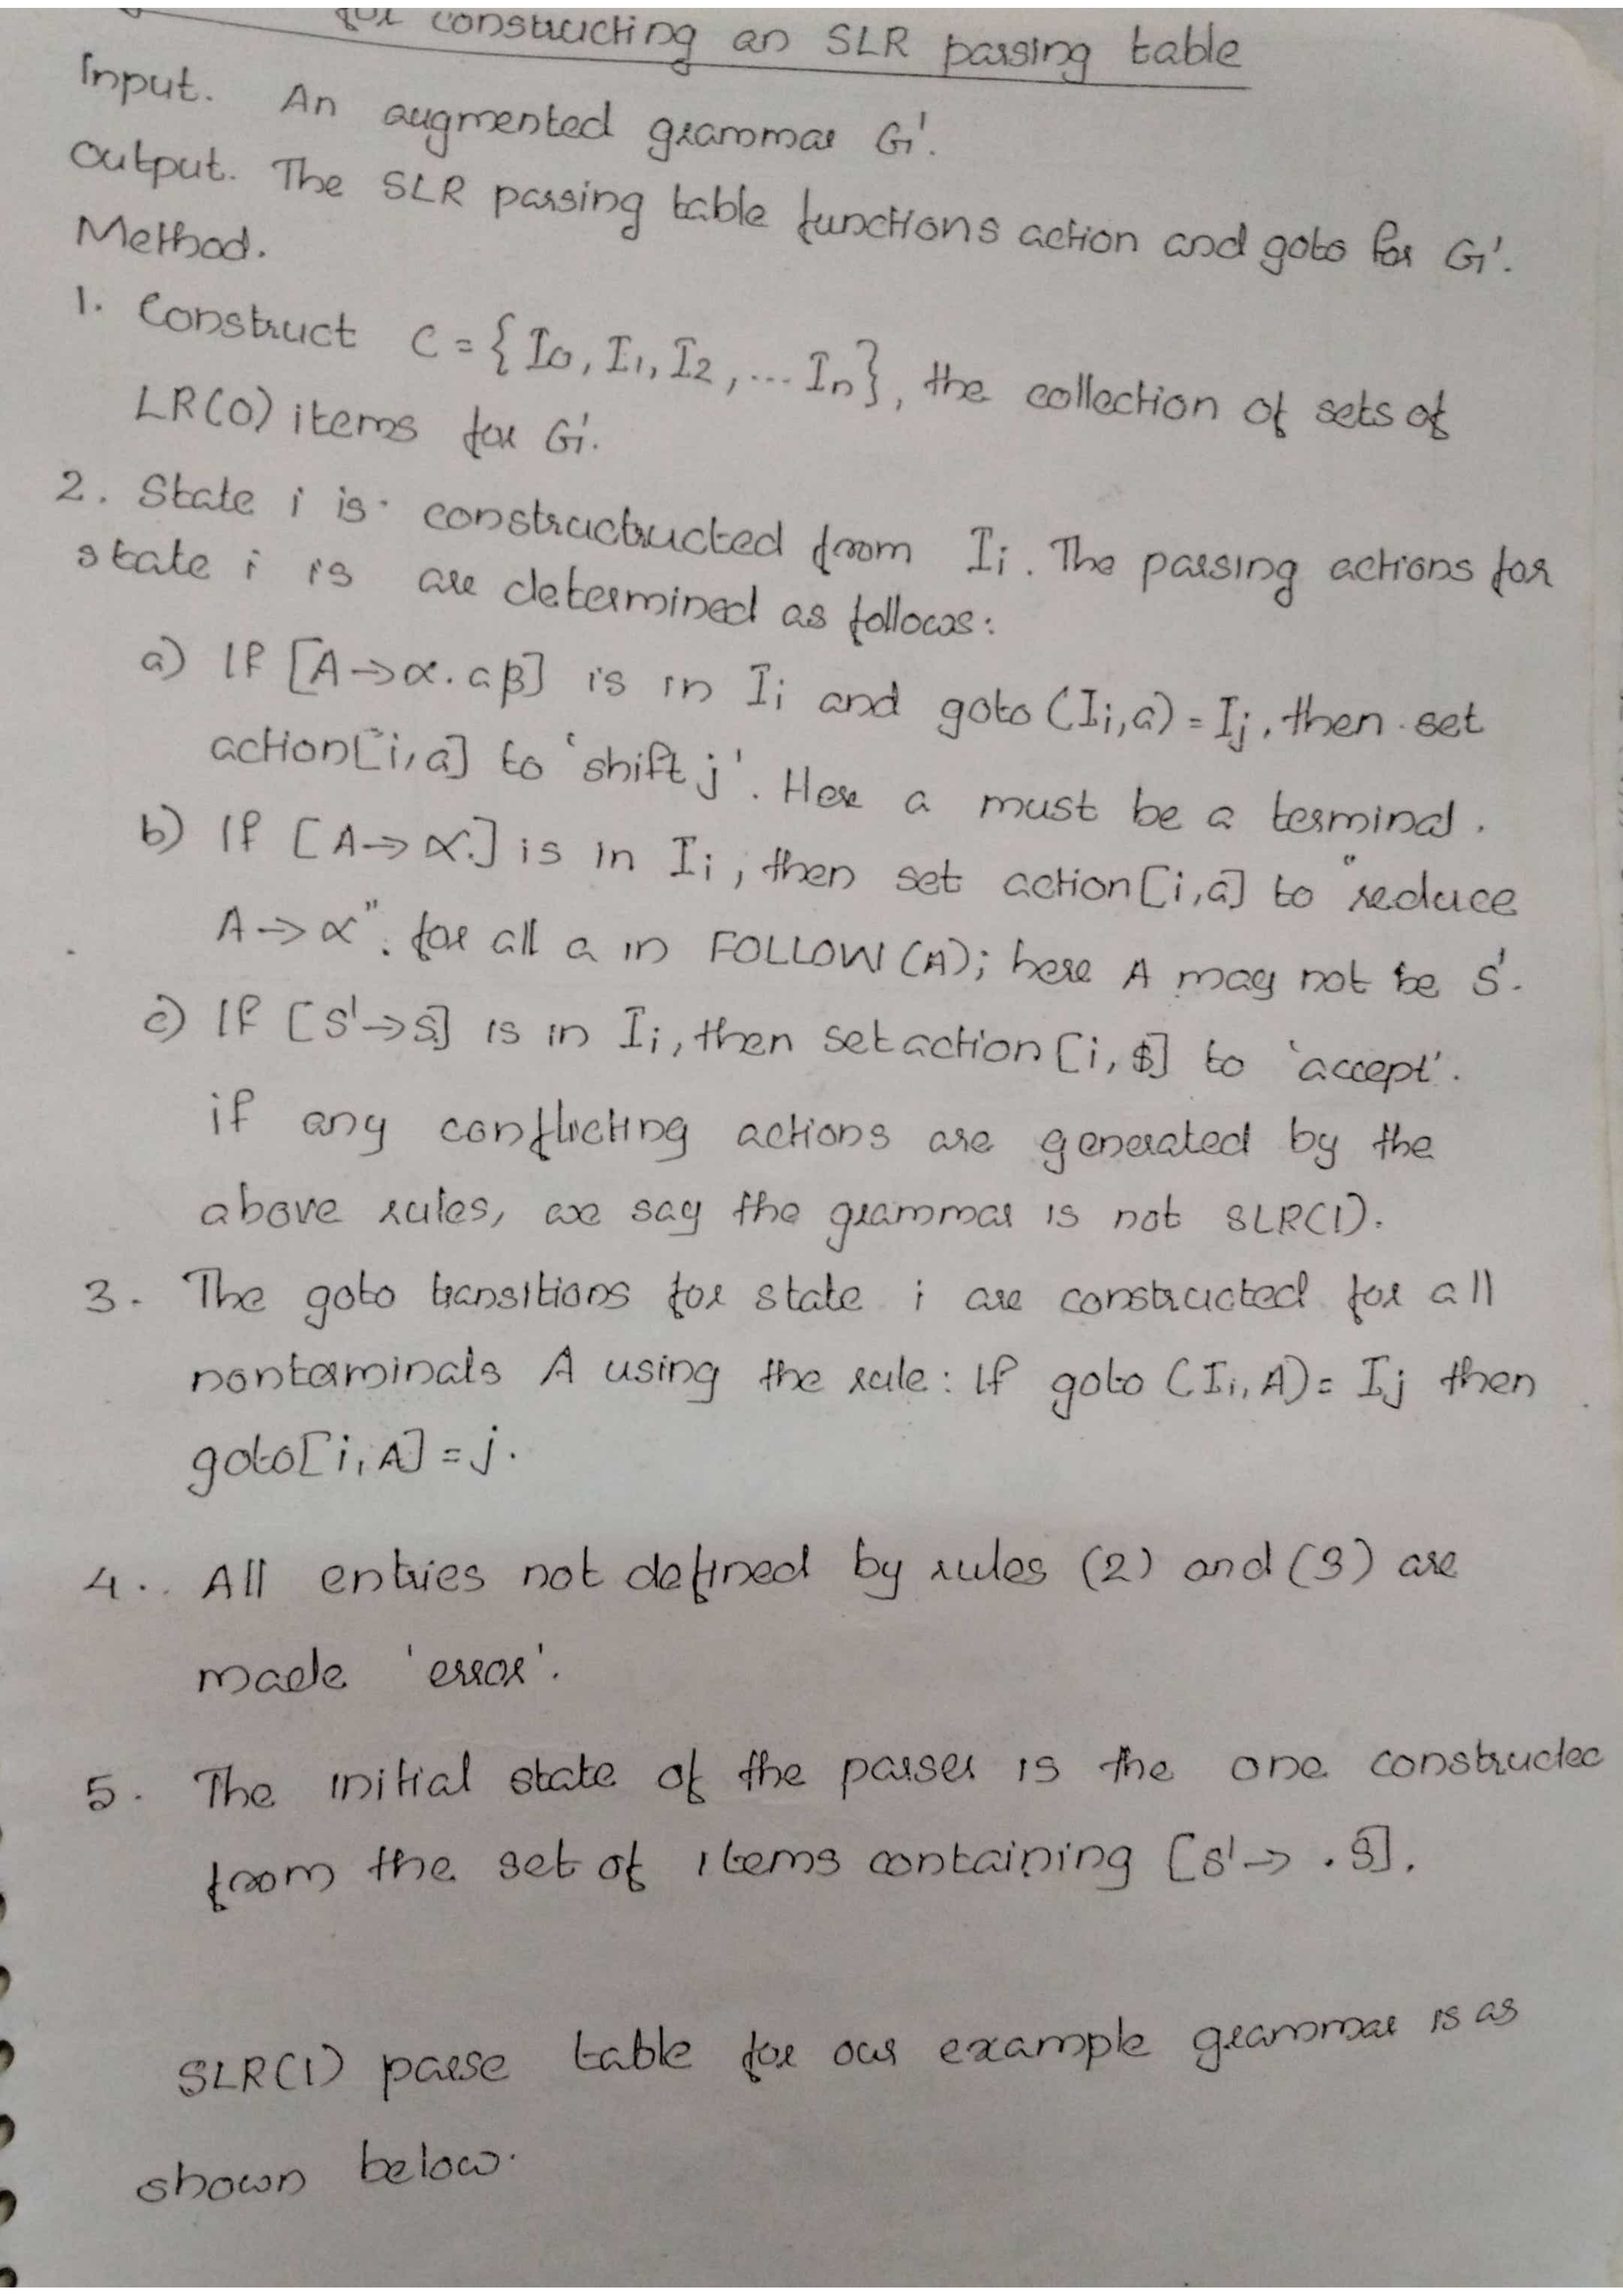 for constructing an SLR parsing table
Input. An augmented grammar G'.
Output. The SLR parsing table functions action and goto for G'.
Method.
1. Construct C = {I0, I1, I2, ... In}, the collection of sets of
LR(0) items for G'.
2. State i is constructructed from Ii. The parsing actions for
state i is are determined as follows:
a) If [A→α.aβ] is in Ii and goto (Ii,a) = Ij, then set
action[i,a] to 'shift j'. Here a must be a terminal.
b) If [A→α.] is in Ii, then set action[i,a] to "reduce
A→α". for all a in FOLLOW (A); here A may not be S'.
c) If [S'→S.] is in Ii, then set action [i, $] to 'accept'.
if any conflicting actions are generated by the
above rules, we say the grammar is not SLR(1).
3. The goto transitions for state i are constructed for all
nonterminals A using the rule: If goto (Ii, A) = Ij then
goto[i, A] = j.
4. All entries not defined by rules (2) and (3) are
made 'error'.
5. The initial state of the parser is the one constructed
from the set of items containing [S'→ .S].
SLR(1) parse table for our example grammar is as
shown below.